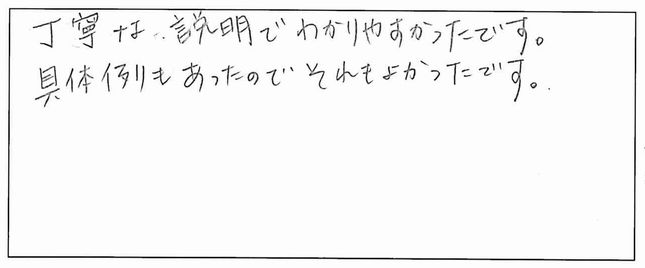 丁寧な説明でわかりやすかったです。
具体例もあったのでそれもよかったです。